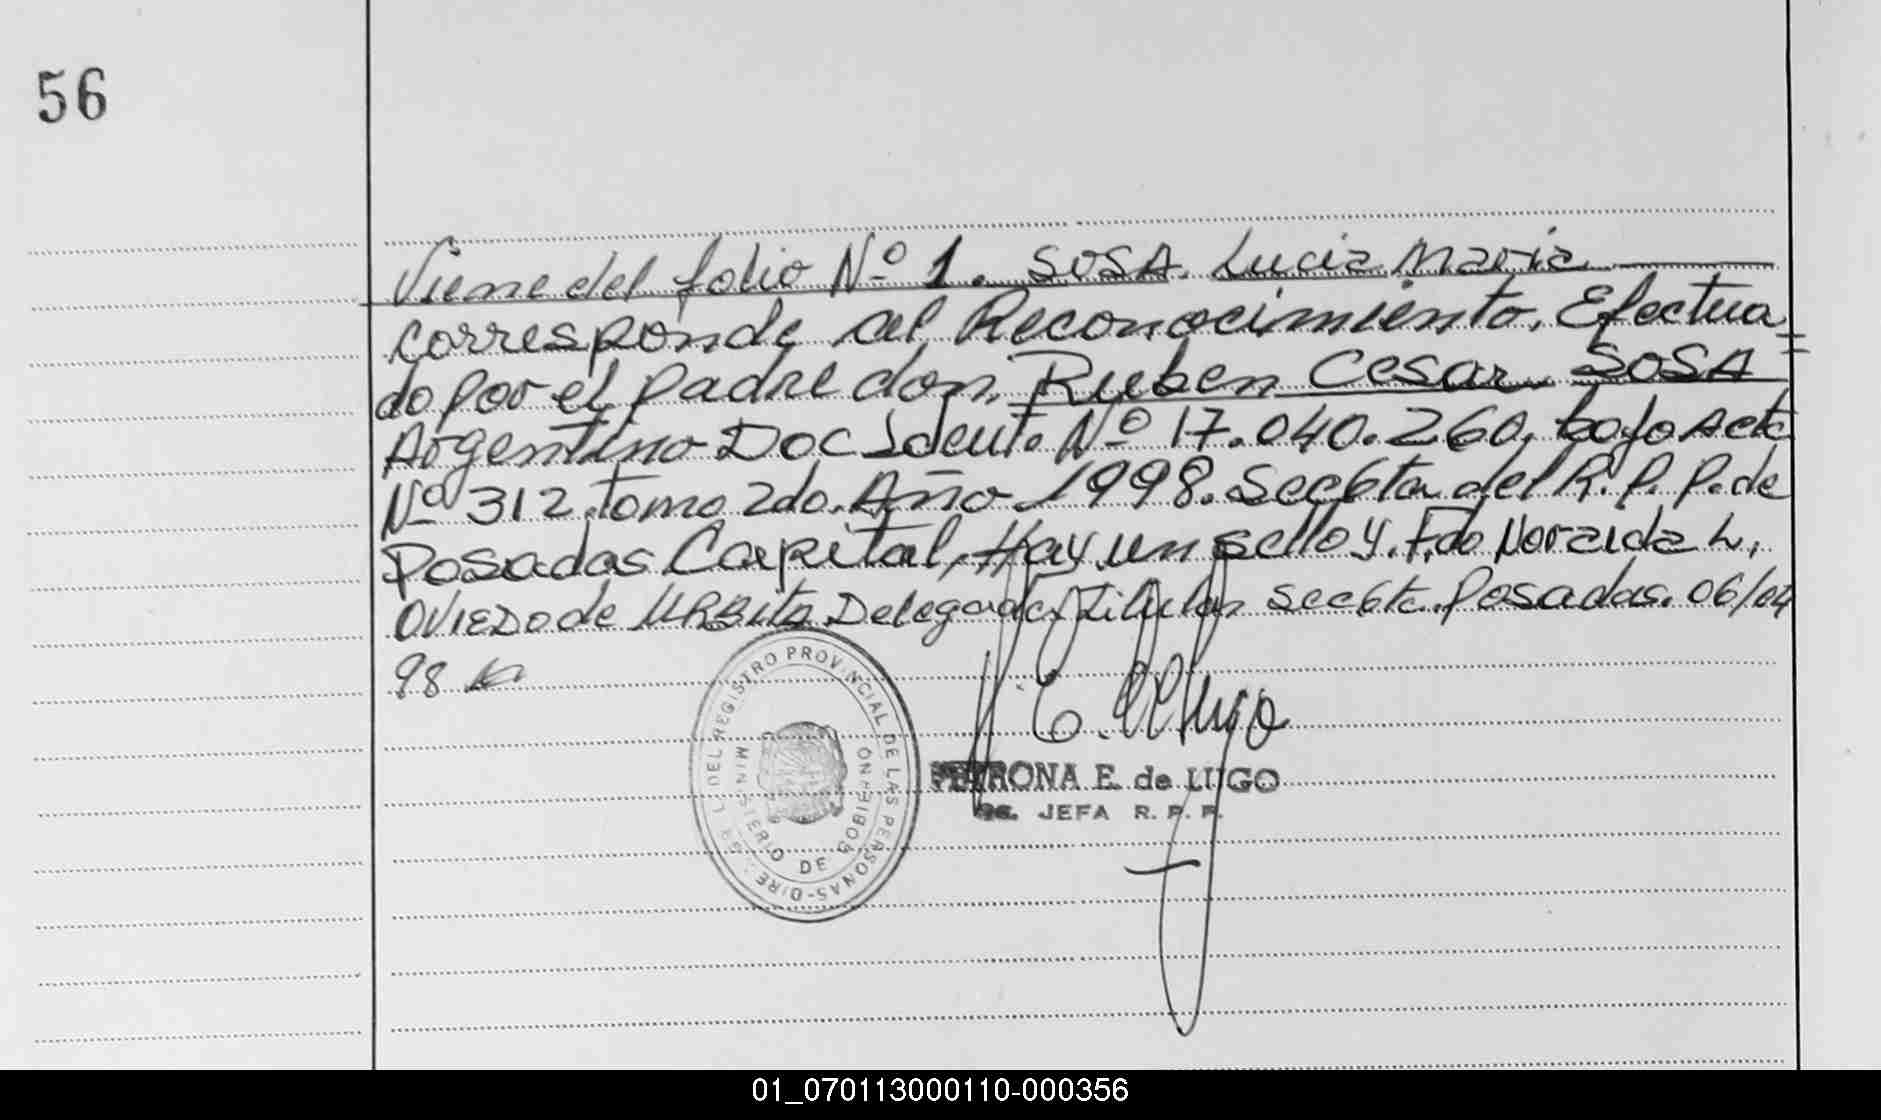 56
Viene del folio Nº 1. SOSA. Lucia Maria
corresponde al Reconocimiento. Efectua=
do por el padre don. Ruben Cesar SOSA
Argentino Doc Ident. Nº 17.040.260, bajo Acta
Nº 312. tomo 2do. Año 1998. Sec6ta del R.P.P. de
Posadas Capital, Hay un sello y. Fdo Noraida L.
OVIEDO de URBITA Delegada Titular Sec6ta. Posadas. 06/04
98
REGISTRO PROVINCIAL DE LAS PERSONAS-DIRE GRL DEL
MINISTERIO DE GOBIERNO
PETRONA E. de LUGO
JEFA R. P. P.
01_070113000110-000356